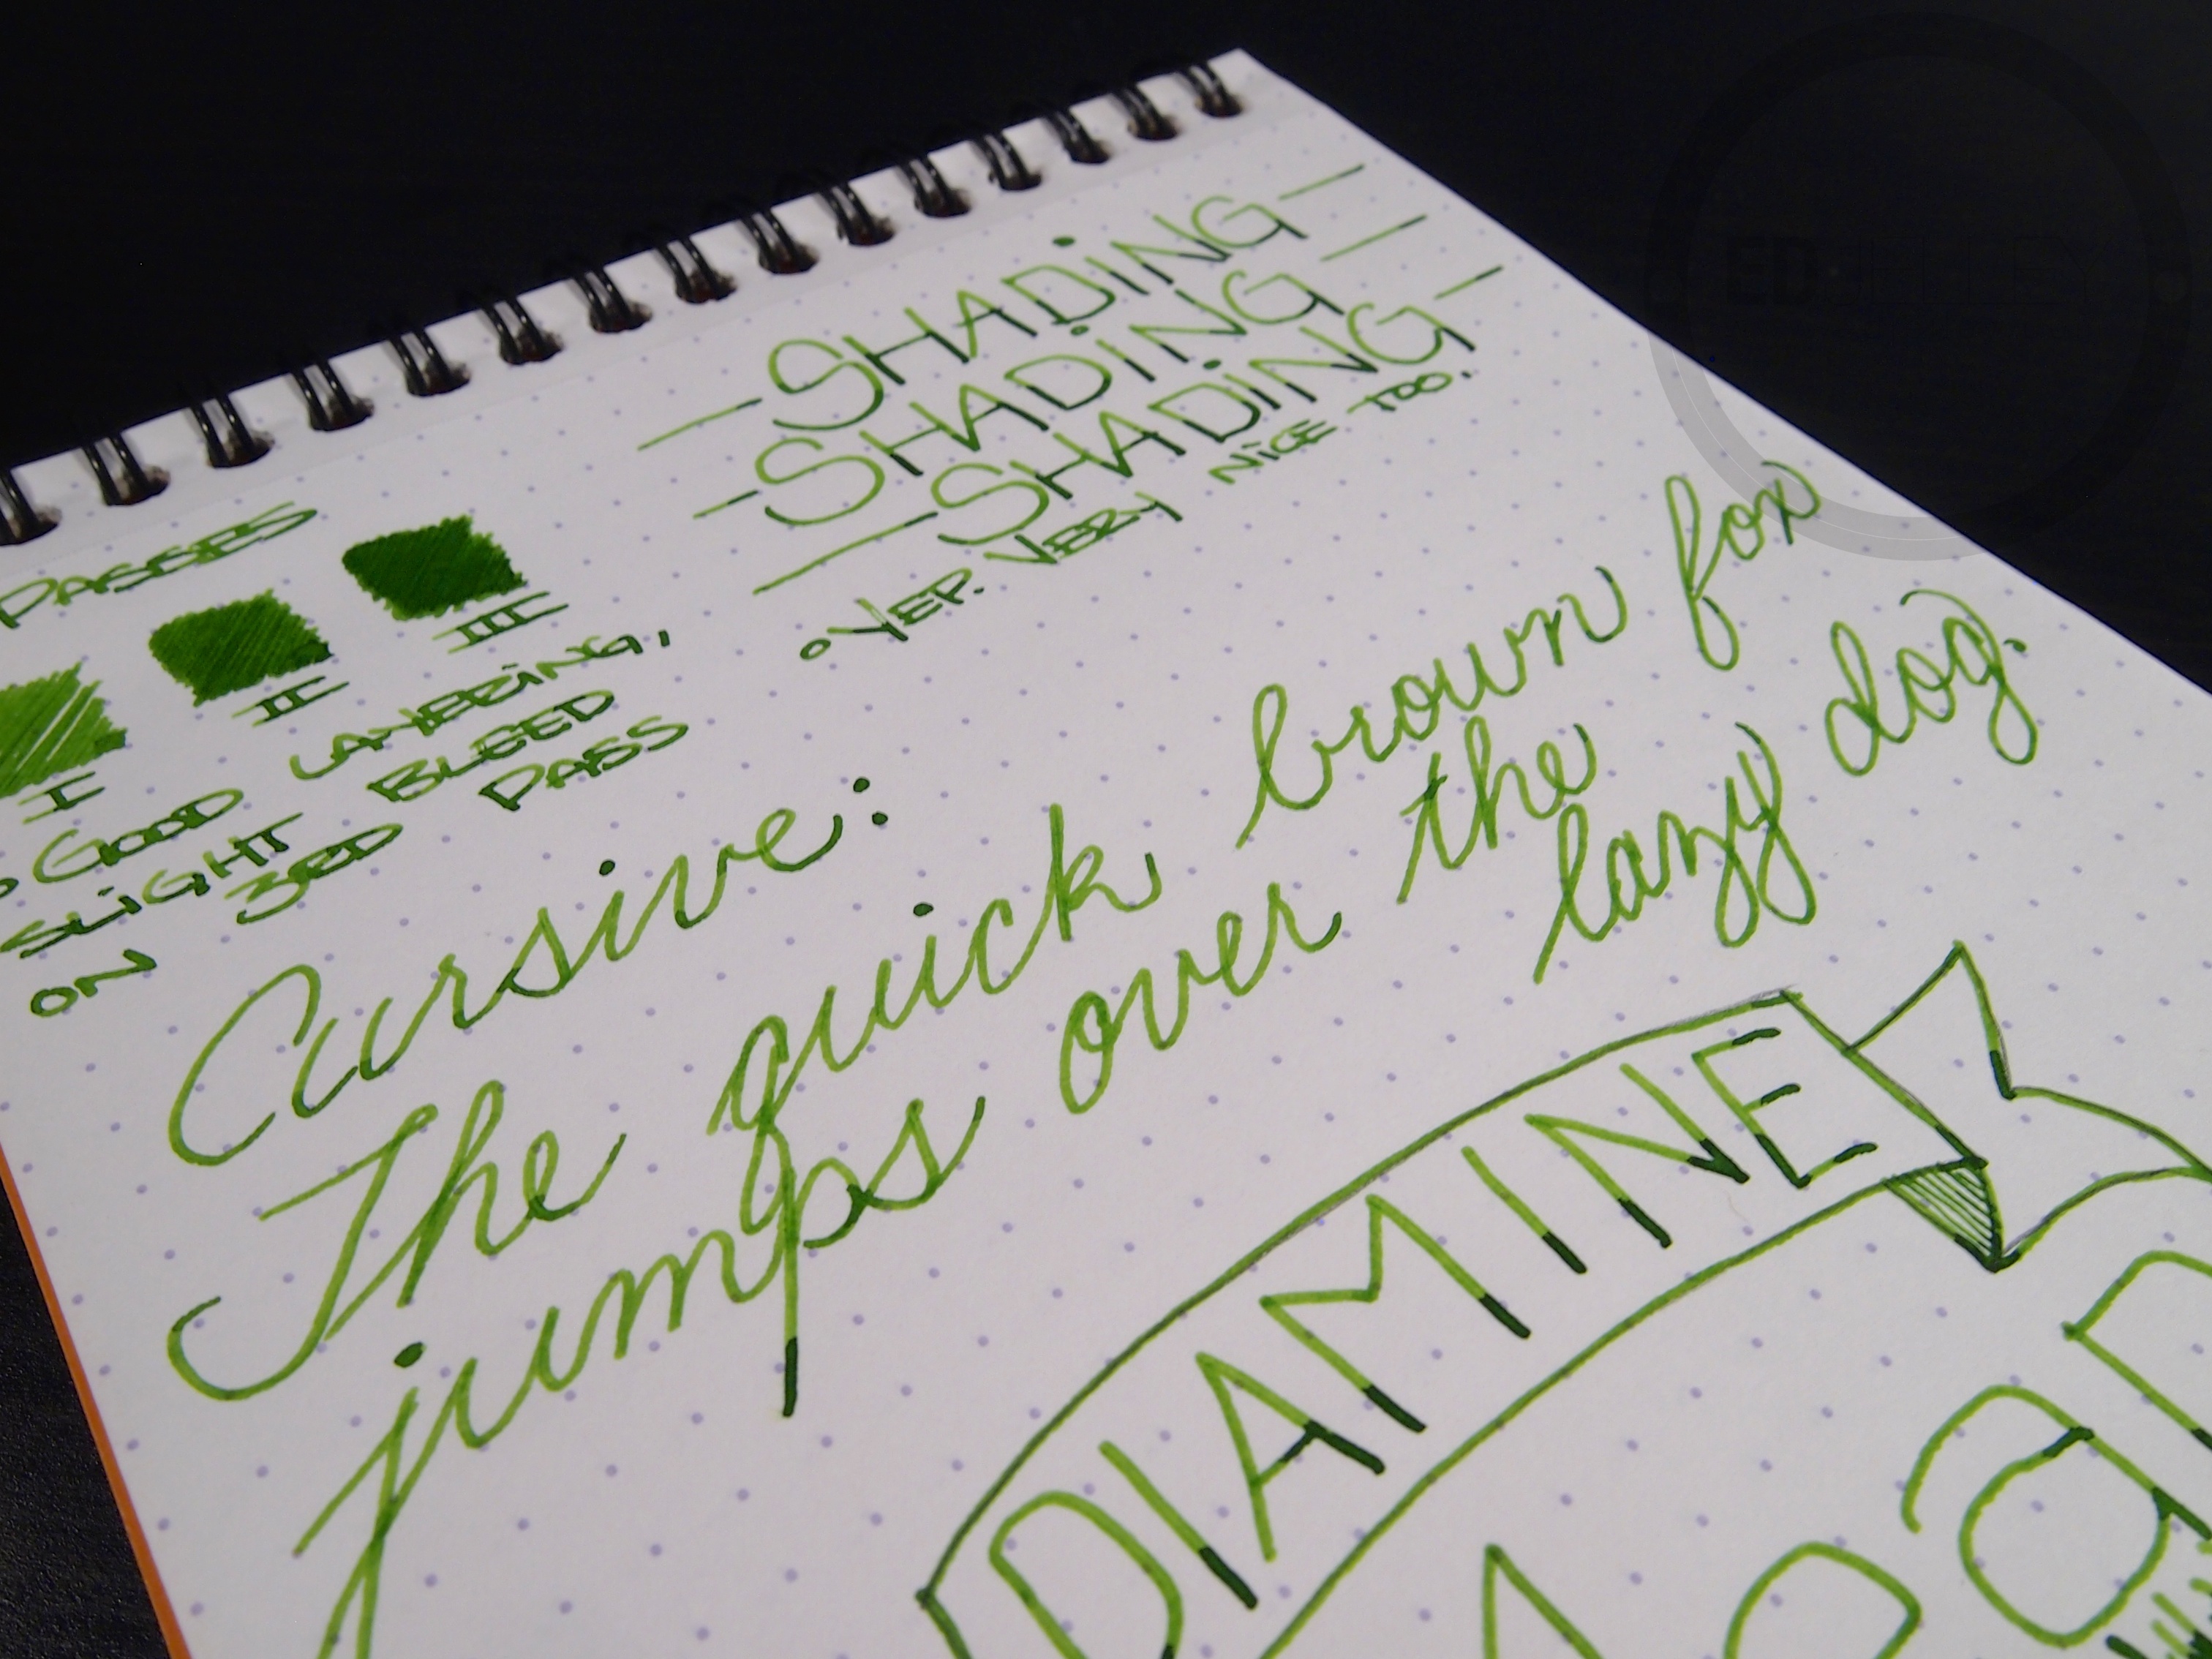 PASSES
I II III
Good LAYERING,
SLiGHT BLEED
ON 3RD PASS
SHADiNG
SHADiNG
SHADiNG
YEP. VERY NiCE TOO.
Cursive:
The quick brown fox
jumps over the
lazy dog.
DIAMINE